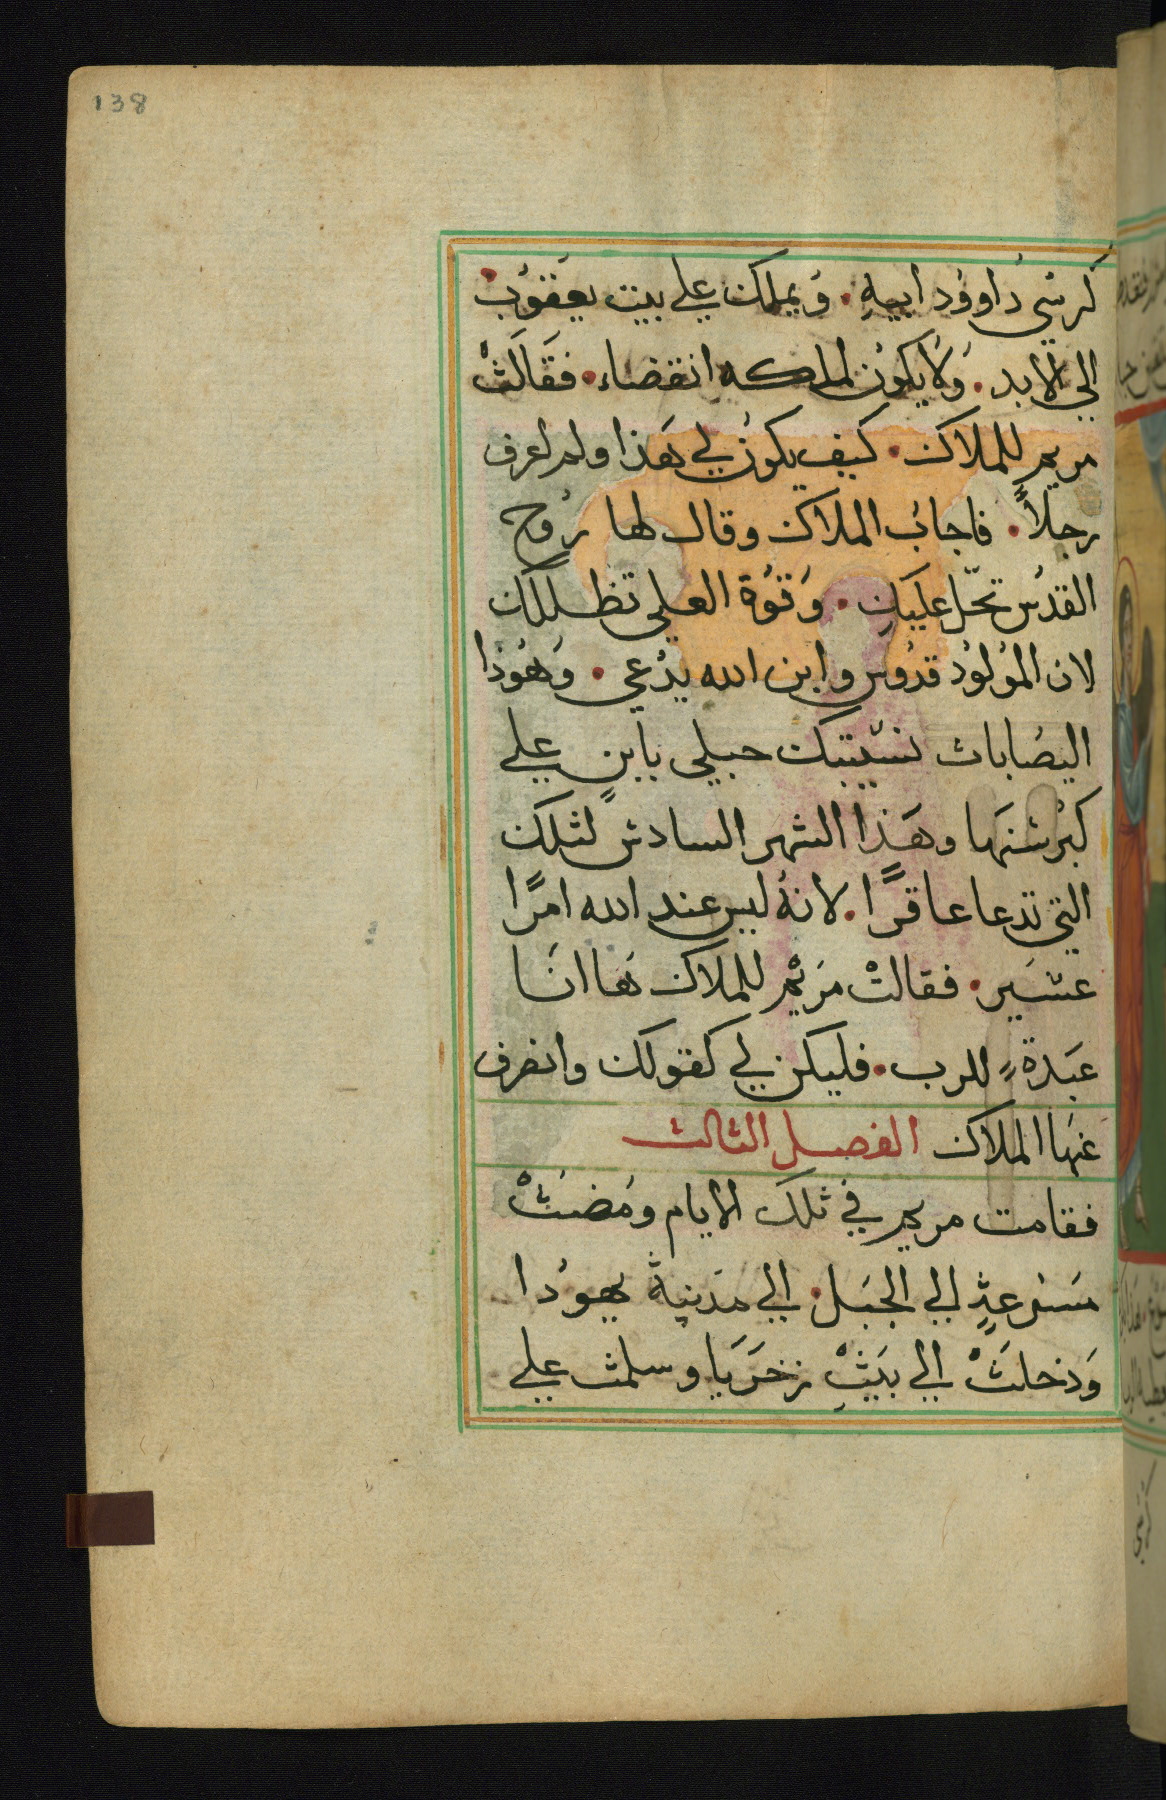 138
كرسي داوود ابيهِ. ويملك علي بيت يعقوب.
الي الابد. ولا يكون لملكه انقضاء. فقالتْ
مريم للملاك. كيف يكون لي هذا ولم اعرف
رجلاً. فاجاب الملاك وقال لها روح
القدس تحلّ عليكِ. وقوة العلي تظللك
لان المولود قدوس وابن الله يدعي. وهوذا
اليصابات نسيبتك حبلي بابنٍ علي
كبر سنها وهذا الشهر السادس لتلك
التي تدعا عاقرًا. لانهُ ليس عند الله امرًا
عسير. فقالتْ مريم للملاك ها انا
عبدةٌ للرب. فليكن لي كقولك وانصرف
عنها الملاك الفصل الثالث
فقامت مريم في تلك الايام ومضتْ
مسرعةٍ الي الجبل. الي مدينة يهودا
ودخلتْ الي بيتِ زخريا وسلمت علي